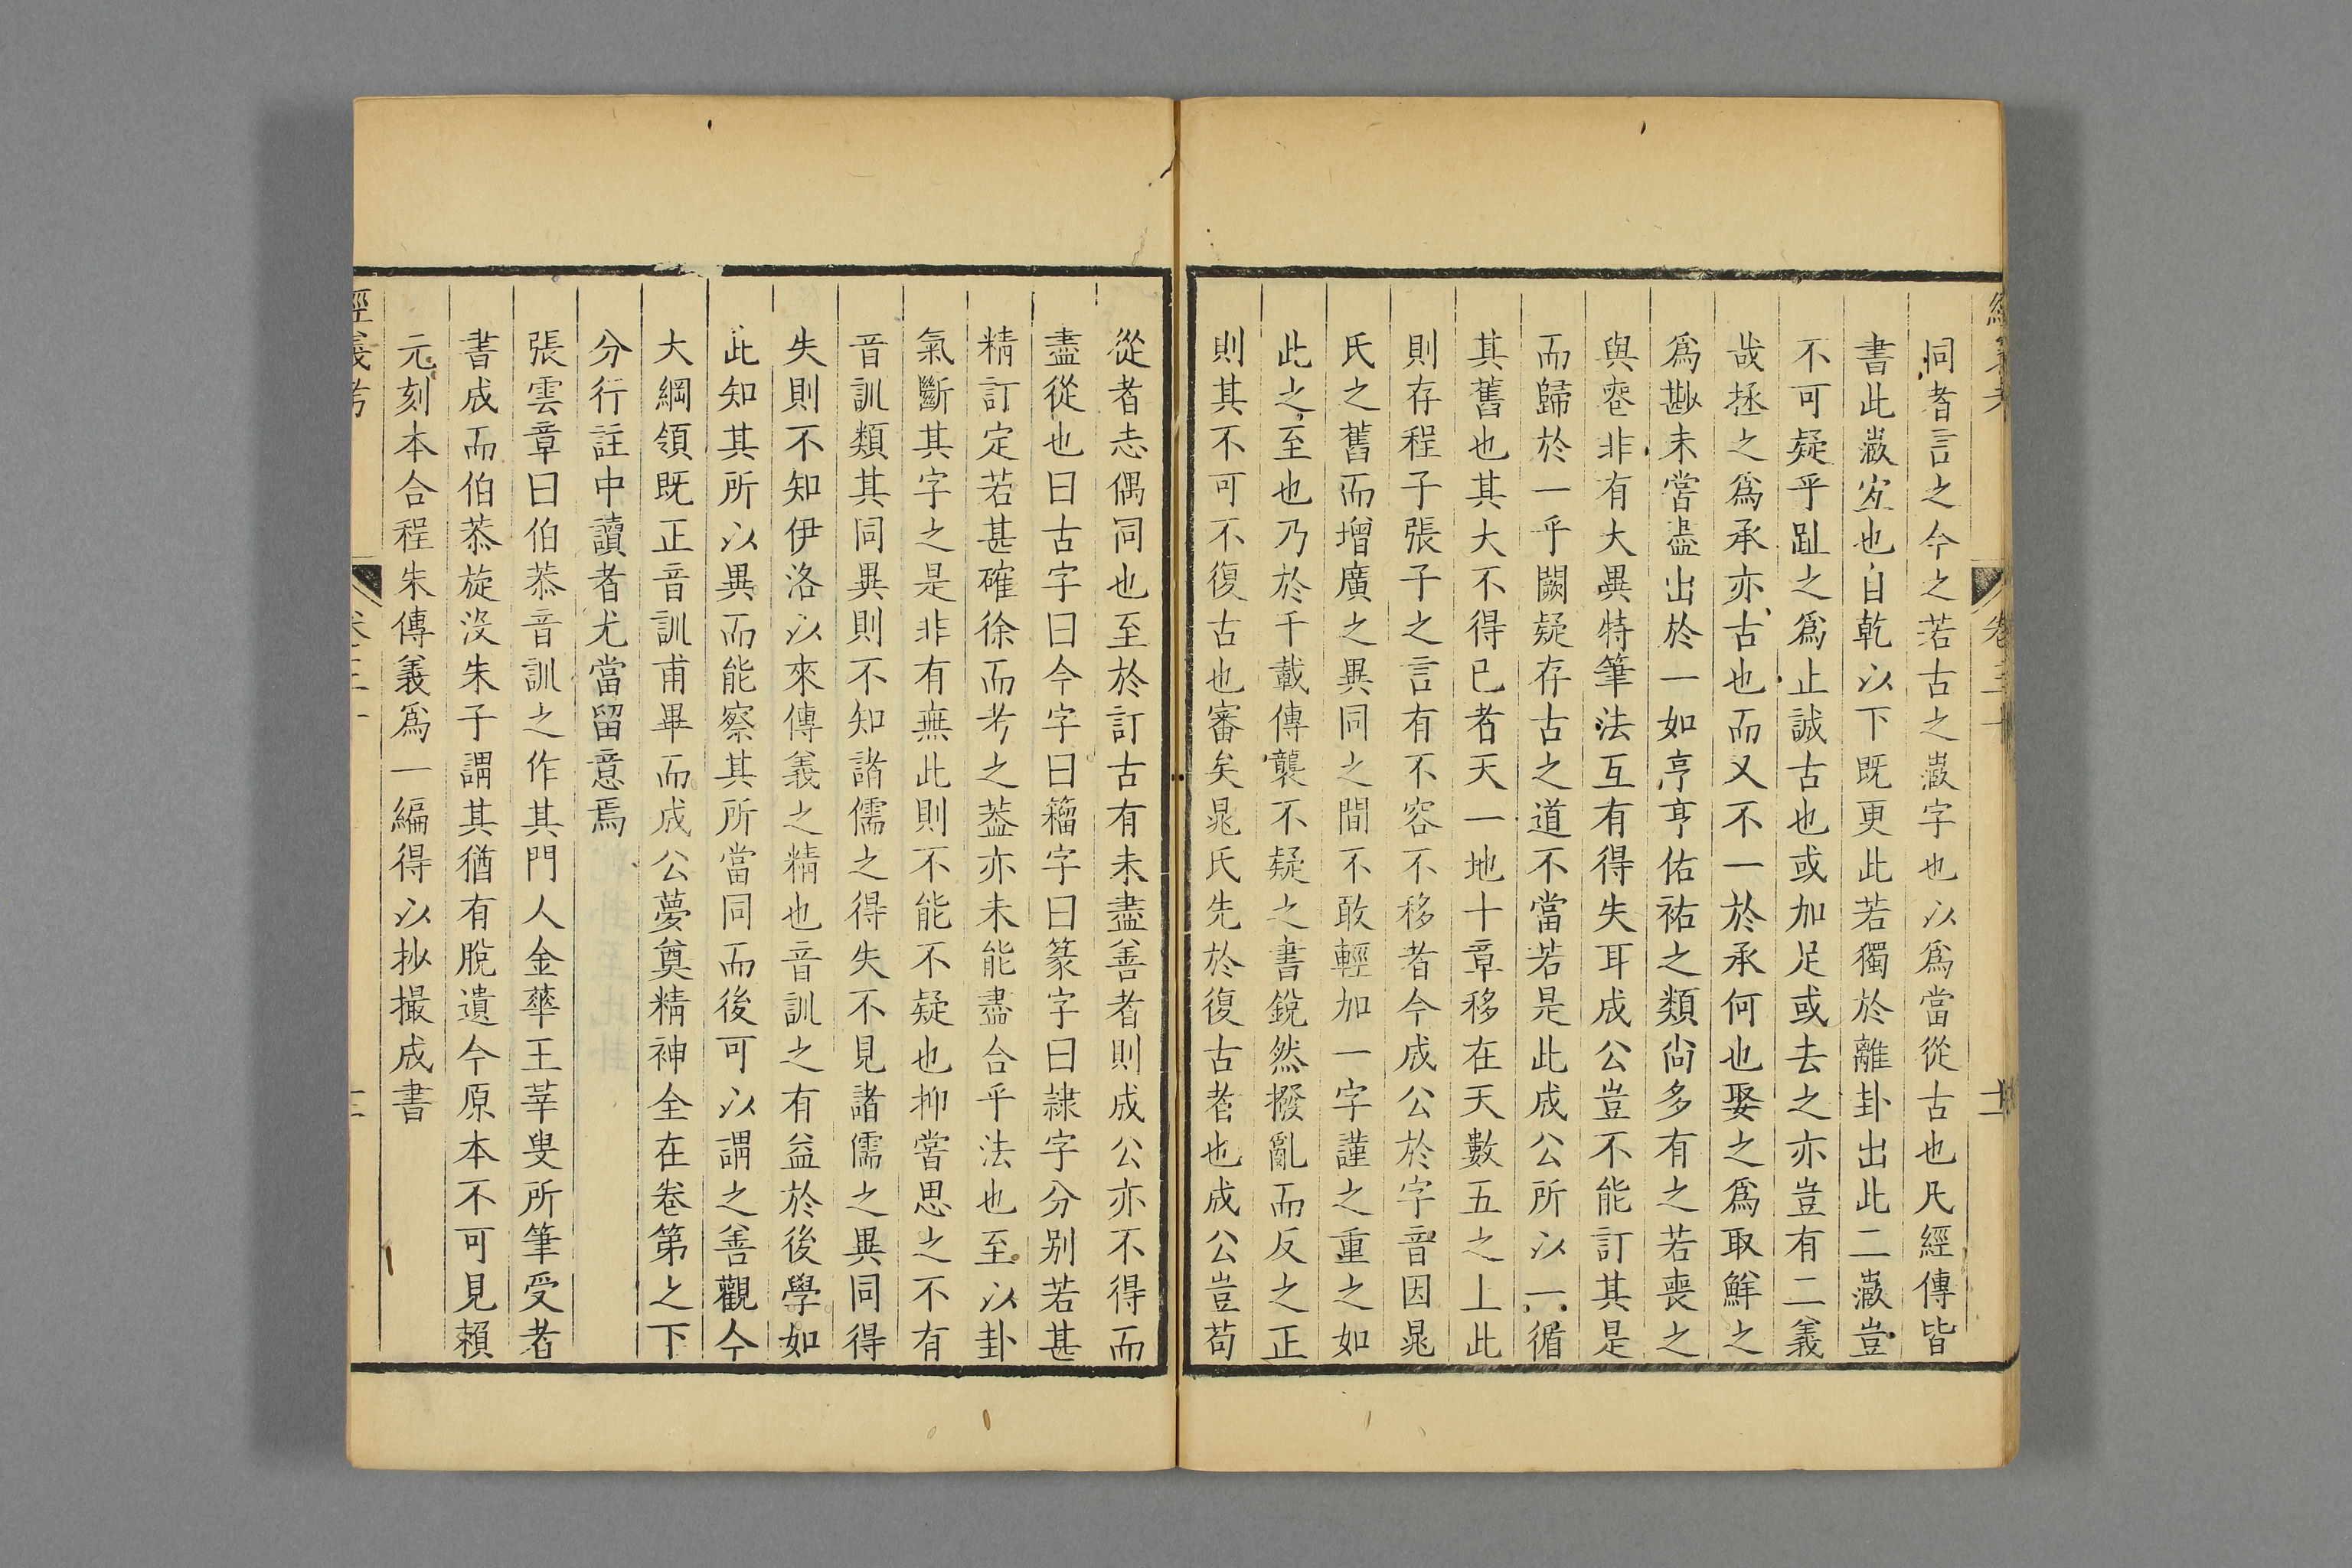 同者言之今之若古之嶶字也以爲當從古也凡經傳皆
書此嶶宐也自乾以下既更此若獨於離卦出此二嶶豈
不可疑乎趾之爲止誠古也或加足或去之亦豈有二義
哉拯之爲承亦古也而又不一於承何也娶之爲取鮮之
爲尠未嘗盡出於一如亨亨佑祐之類尙多有之若喪之
與䘮非有大異特筆法互有得失耳成公豈不能訂其是
而歸於一乎闕疑存古之道不當若是此成公所以一循
其舊也其大不得已者天一地十章移在天數五之上此
則存程子張子之言有不容不移者今成公於字音因晁
氏之舊而增廣之異同之間不敢輕加一字謹之重之如
此之至也乃於千載傳襲不疑之書銳然撥亂而反之正
則其不可不復古也審矣晁氏先於復古者也成公豈苟
從者志偶同也至於訂古有未盡善者則成公亦不得而
盡從也曰古字曰今字曰籀字曰篆字曰隷字分别若甚
精訂定若甚確徐而考之葢亦未能盡合乎法也至以卦
氣斷其字之是非有無此則不能不疑也抑嘗思之不有
音訓類其同異則不知諸儒之得失不見諸儒之異同得
失則不知伊洛以來傳義之精也音訓之有益於後學如
此知其所以異而能察其所當同而後可以謂之善觀今
大綱領既正音訓甫畢而成公夢奠精神全在卷第之下
分行註中讀者尤當留意焉
張雲章曰伯恭音訓之作其門人金華王莘叟所筆受者
書成而伯恭旋没朱子謂其猶有脫遺今原本不可見賴
元刻本合程朱傳義爲一編得以抄撮成書
經義考